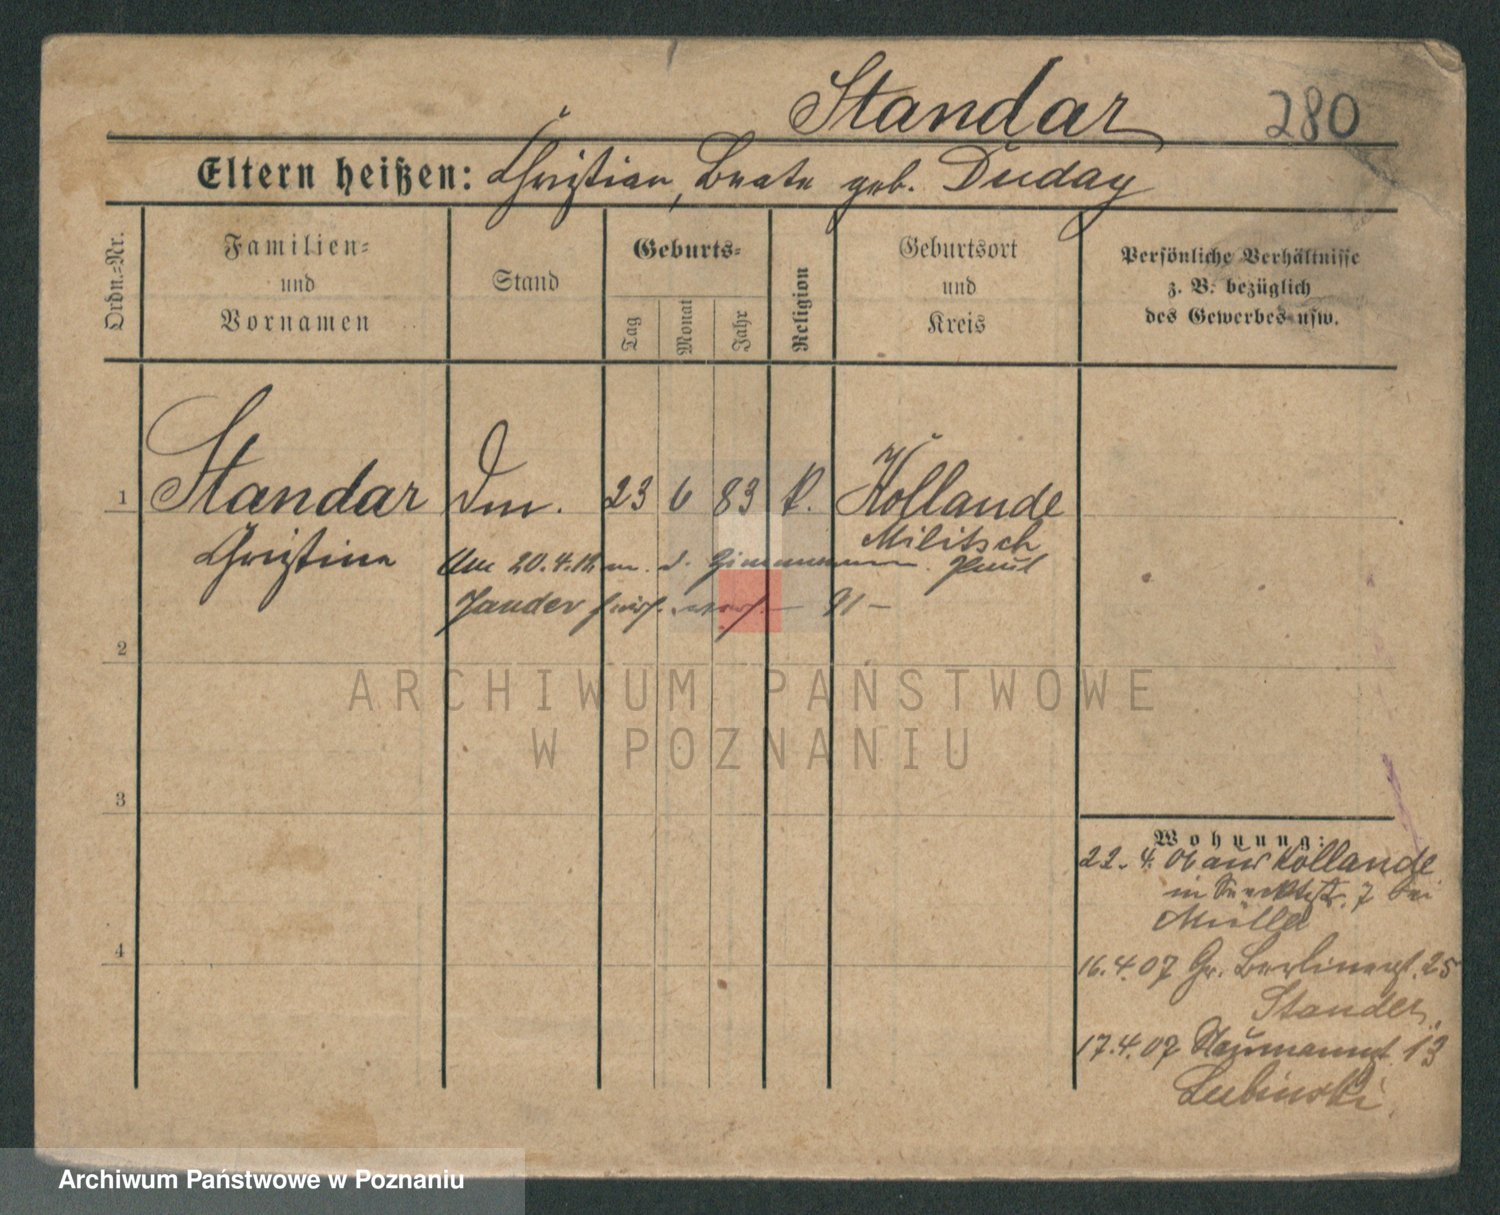 Standar 280
Eltern heißen: Christian, Beate geb. Duday
Ordn.-Nr.
Familien-
und
Vornamen
Stand
Geburts-
Tag
Monat
Jahr
Religion
Geburtsort
und
Kreis
Persönliche Verhältnisse
z. B. bezüglich
des Gewerbes usw.
1 Standar Dm. 23 6 83 k. Kollande
Christine Militsch
20.4.12 m. d. Paul
Jander
2
ARCHIWUM PAŃSTWOWE
W POZNANIU
3
Wohnung:
22. 4. 06 aus Kollande
in 7 bei
Müller
4
16.4.07 Gr. Berlinerst. 25
Stander
17.4.07 Naumannst. 13
Lubinski
Archiwum Państwowe w Poznaniu